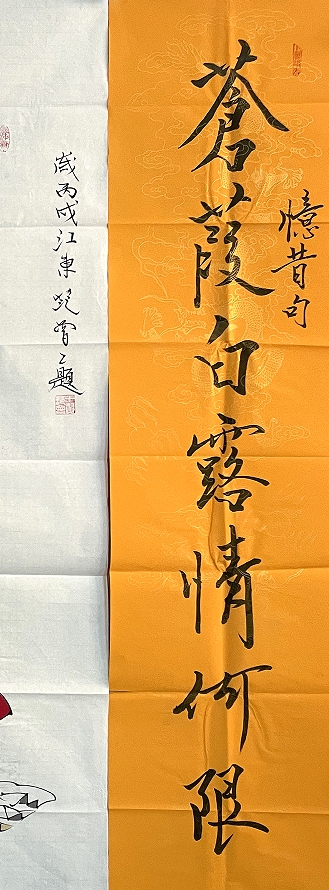 憶昔句
蒼葭白露情何限
歲丙戌江東
題